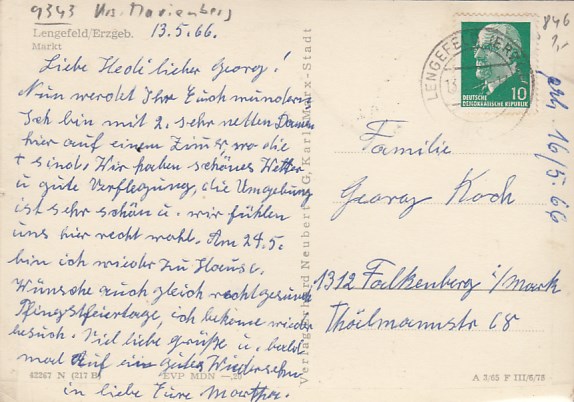 9343 Krs. Marienberg
Lengefeld/Erzgeb.
Markt
13.5.66.
Liebe Hedi lieber Georg!
Nun werdet Ihr Euch wundern
Ich bin mit 2. sehr netten Damen
hier auf einem Zimmer wo die
sind. Wir haben schönes Wetter
u gute Verflegung, die Umgebung
ist sehr schön u. wir fühlen
uns hier recht wohl. Am 24.5.
bin ich wieder zu Hause.
Wünsche auch gleich recht gesunde
Pfingstfeiertage, ich bekome wieder
besuch. Viel liebe grüße u. bald
mal auf ein gutes Wiedersehn
in liebe Eure Martha.
42267 N (217 B) EVP MDN —.20
Verlag Gerhard Neubert KG, Karl-Marx-Stadt
LENGEFELD (ERZGEB)
DEUTSCHE
DEMOKRATISCHE REPUBLIK
10
846
1,-
erh. 16/5. 66
Familie
Georg Koch
1312 Falkenberg i/Mark
Thälmannstr 68
A 3/65 F III/6/78